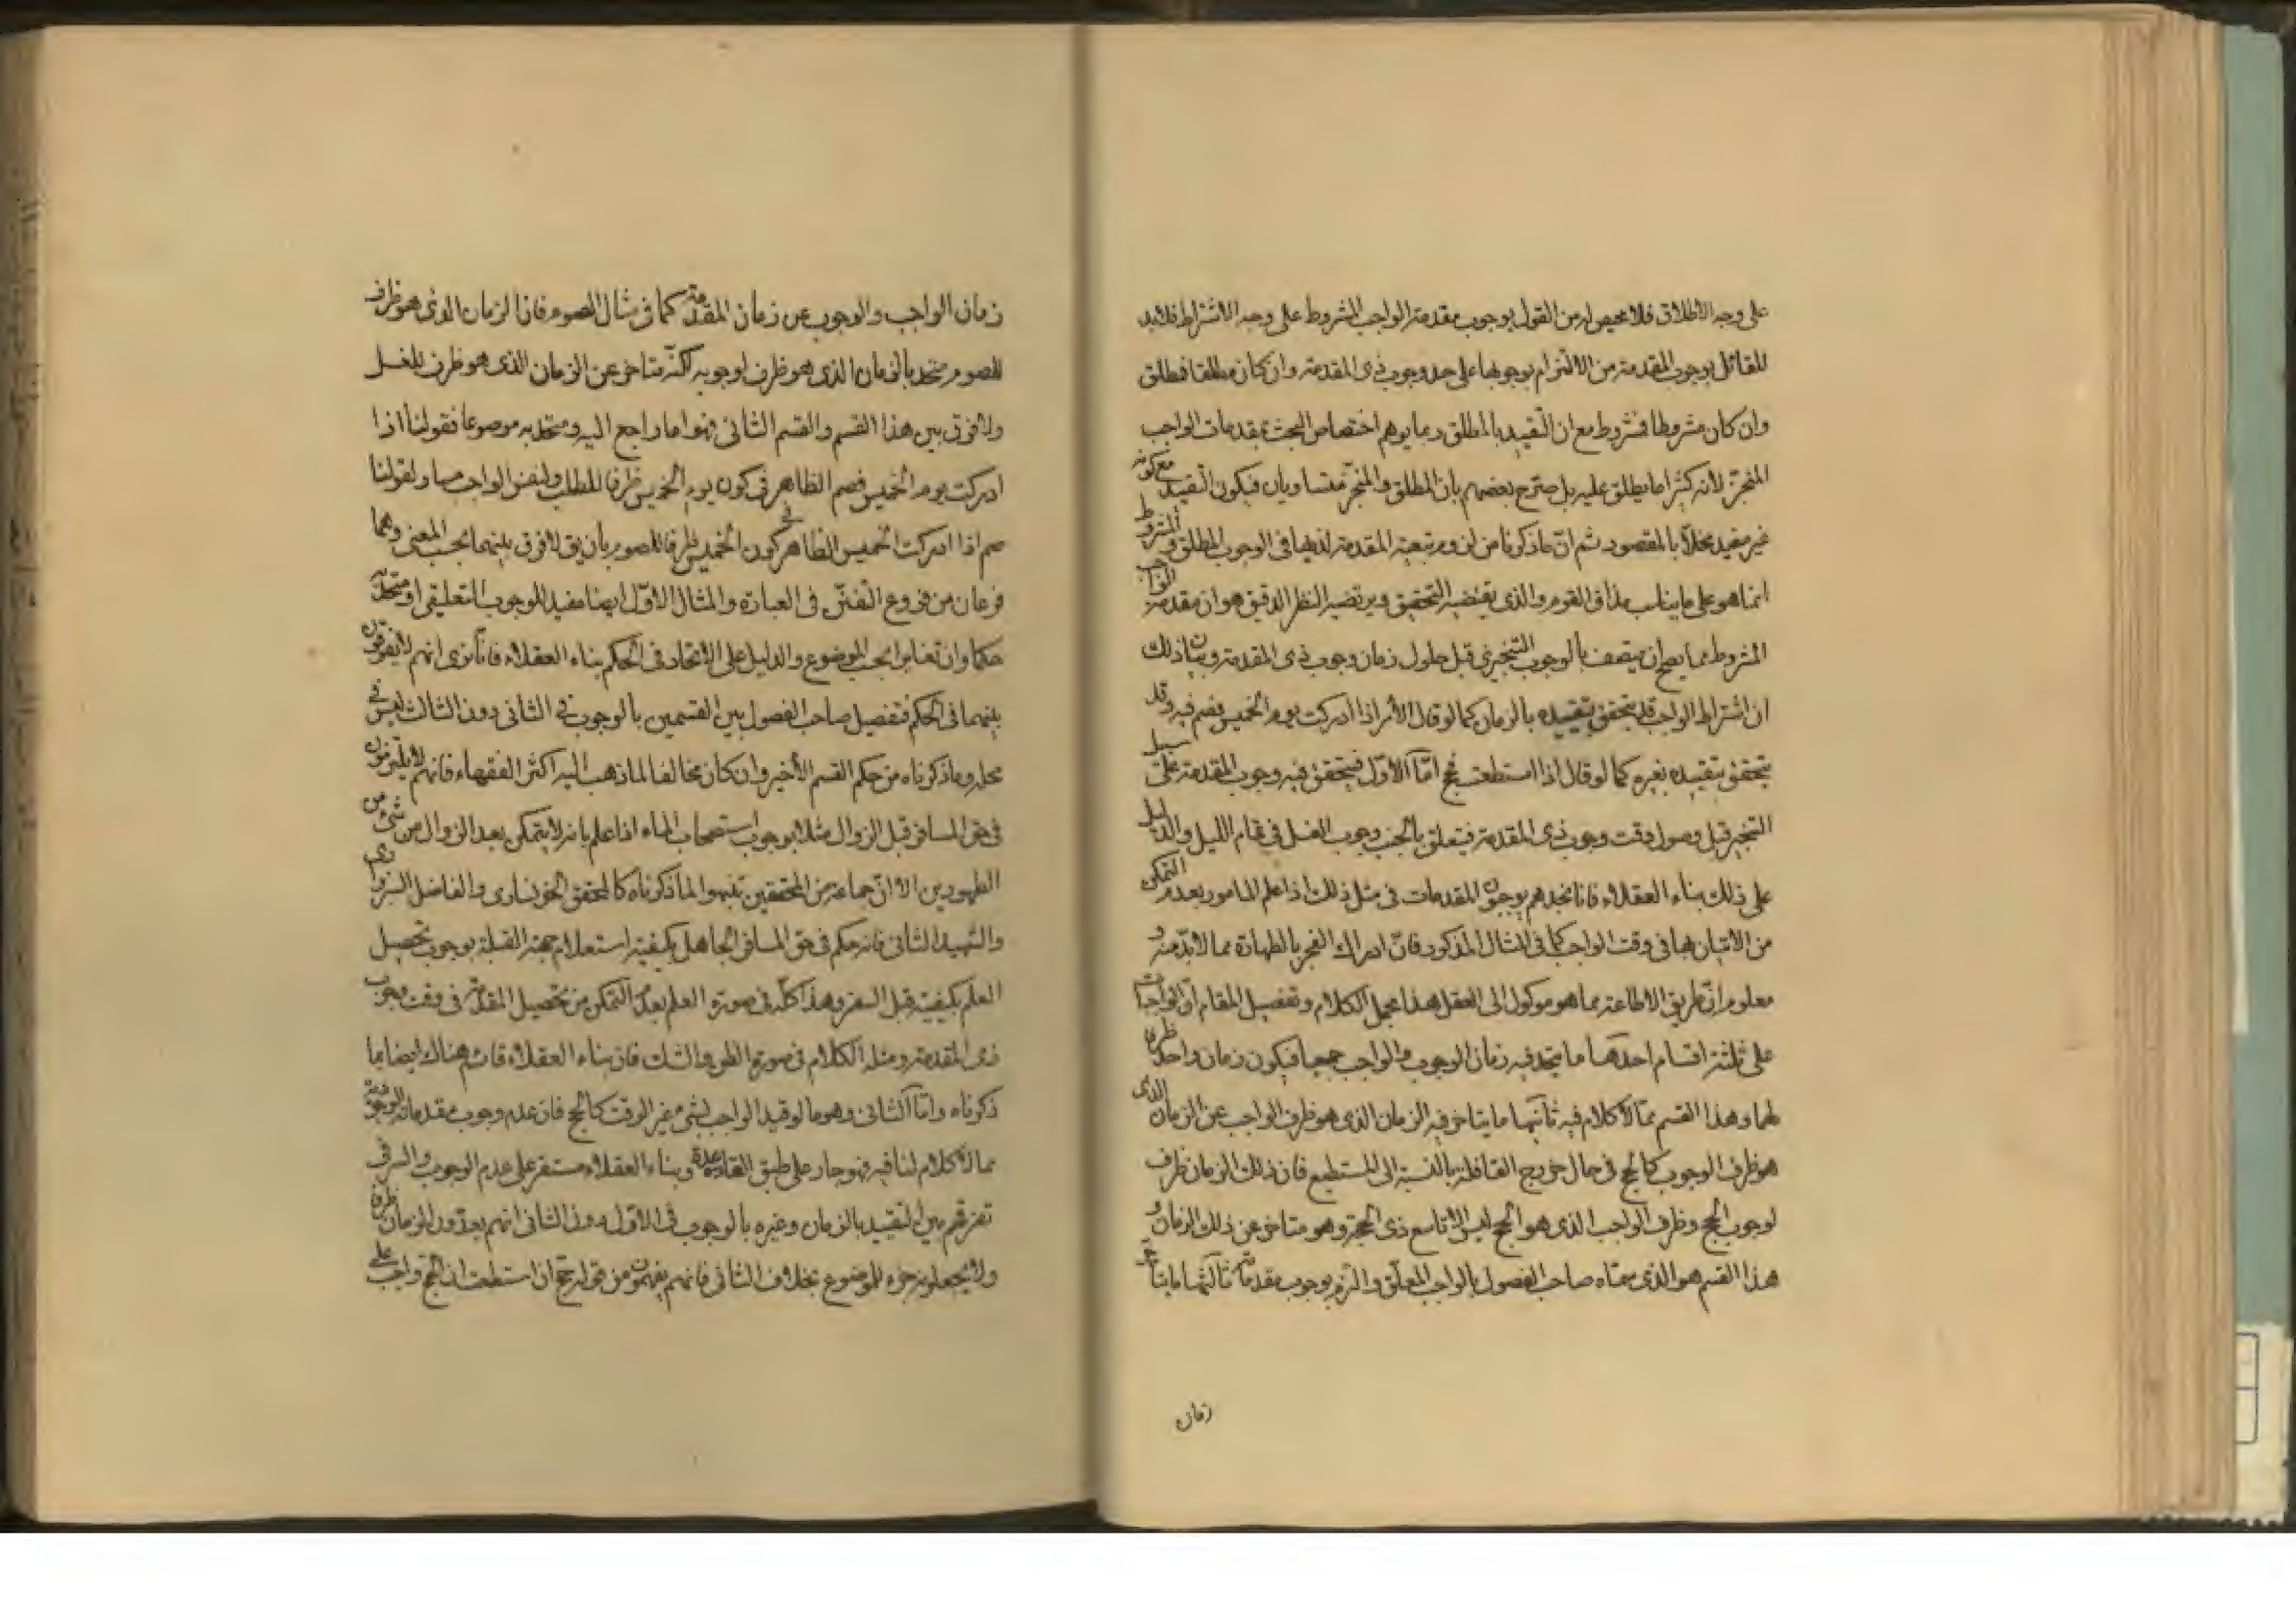 على وجه الاطلاق فلا محيص له من القول بوجوب مقدمة الواجب المشروط على وجه الاشتراط فلا بد
للقائل بوجوب المقدمة من الالتزام بوجوبها على حد وجوب ذى المقدمة وان كان مطلقا فمطلق
وان كان مشروطا فمشروط مع ان التقييد بالمطلق ربما يوهم اختصاص البحث بمقدمات الواجب
المنجز لانه كثيرا ما يطلق عليه بل صرّح بعضهم بان المطلق والمنجز متساويان فيكون التقييد مع كونه
غير مفيد مخلّا بالمقصود ثم انّ ما ذكرنا من لزوم تبعية المقدمة لذيها فى الوجوب المطلق والمشروط
انما هو على ما يناسب مذاق القوم والذى يقتضيه التحقيق ويرتضيه النظر الدقيق هو ان مقدمة الواجب
المشروط مما يصح ان يتصف بالوجوب التنجيزي قبل حلول زمان وجوب ذى المقدمة وبيان ذلك
ان اشتراط الواجب قد يتحقق بتقييده بالزمان كما لو قال الأمر اذا ادركت يوم الخميس فصم فيه وقد
يتحقق بتقييده بغيره كما لو قال اذا استطعت فحج امّا الأوّل فيتحقق فيه وجوب المقدمة على سبيل
التنجيز قبل وصول وقت وجوب ذى المقدمة فيتعلق بالجنب وجوب الغسل فى تمام الليل والدليل
على ذلك بناء العقلاء فانا نجدهم يوجبون المقدمات فى مثل ذلك اذا علم المامور بعدم التمكن
من الاتيان بها فى وقت الواجب كما فى المثال المذكور فانّ ادراك الفجر بالطهارة مما لابدّ منه و
معلوم انّ طريق الاطاعة مما هو موكول الى العقل هذا مجمل الكلام وتفصيل المقام انّ الواجبات
على ثلثة اقسام احدها ما يتحد فيه زمان الوجوب والواجب جميعا فيكون زمان واحد ظرفا
لهما وهذا القسم ممّا لا كلام فيه ثانيها ما يتاخر فيه الزمان الذى هو ظرف الواجب عن الزمان الذى
هو ظرف الوجوب كالحج فى حال خروج القافلة بالنسبة الى المستطيع فان ذلك الزمان ظرف
لوجوب الحج وظرف الواجب الذى هو الحج ليس الا تاسع ذى الحجة وهو متاخر عن ذلك الزمان و
هذا القسم هو الذى سمّاه صاحب الفصول بالواجب المعلّق والتزم بوجوب مقدماته ثالثها ما يتاخر
زمان
زمان الواجب والوجوب عن زمان المقدمة كما فى مثال الصوم فان الزمان الذى هو ظرف
للصوم متحد بالزمان الذى هو ظرف لوجوبه لكنّه متاخر عن الزمان الذى هو ظرف للغسل
ولا فرق بين هذا القسم والقسم الثانى فهو اما راجع اليه ومتحد به موضوعا فقولنا اذا
ادركت يوم الخميس فصم الظاهر فى كون يوم الخميس ظرفا للطلب ولنفس الواجب مساو لقولنا
صم اذا ادركت الخميس الظاهر فى كون الخميس ظرفا للصوم بان يق لا فرق بينهما بحسب المعنى وهما
فرعان من فروع التفنّن فى العبارة والمثال الاوّل ايضا مفيد للوجوب التعليقى او متحد به
حكما وان تغايرا بحسب الموضوع والدليل على الاتحاد فى الحكم بناء العقلاء فانّا نرى انهم لا يفرقون
بينهما فى الحكم فتفصيل صاحب الفصول بين القسمين بالوجوب فى الثانى دون الثالث ليس فى
محله وما ذكرناه من حكم القسم الأخير وان كان مخالفا لما ذهب اليه اكثر الفقهاء فانهم لا يلتزمون
فى حق المسافر قبل الزوال مثلا بوجوب استصحاب الماء اذا علم بانه لا يتمكن بعد الزوال من شىء من
الطهورين الا انّ جماعة من المحققين تنبهوا لما ذكرناه كالمحقق الخونسارى والفاضل السبزوارى
والشهيد الثانى فانه حكم فى حق المسافر الجاهل بكيفية استعلام جهة القبلة بوجوب تحصيل
العلم بكيفيته قبل السفر وهذا كلّه فى صورة العلم بعدم التمكن من تحصيل المقدمة فى وقت وجوب
ذى المقدمة ومثله الكلام فى صورة الظن والشك فان بناء العقلاء قائم هناك ايضا بما
ذكرناه وامّا الثانى وهو ما لو قيد الواجب بشىء غير الوقت كالحج فان عدم وجوب مقدماته الوجودية
مما لا كلام لنا فيه فهو جار على طبق القاعدة وبناء العقلاء مستقر على عدم الوجوب والسر فى
تفرقتهم بين التقييد بالزمان وغيره بالوجوب فى الاوّل دون الثانى انهم يعدّون الزمان ظرفا
ولا يجعلونه جزء للموضوع بخلاف الثانى فانهم يفهمون من قوله حج ان استطعت ان الحج واجب على